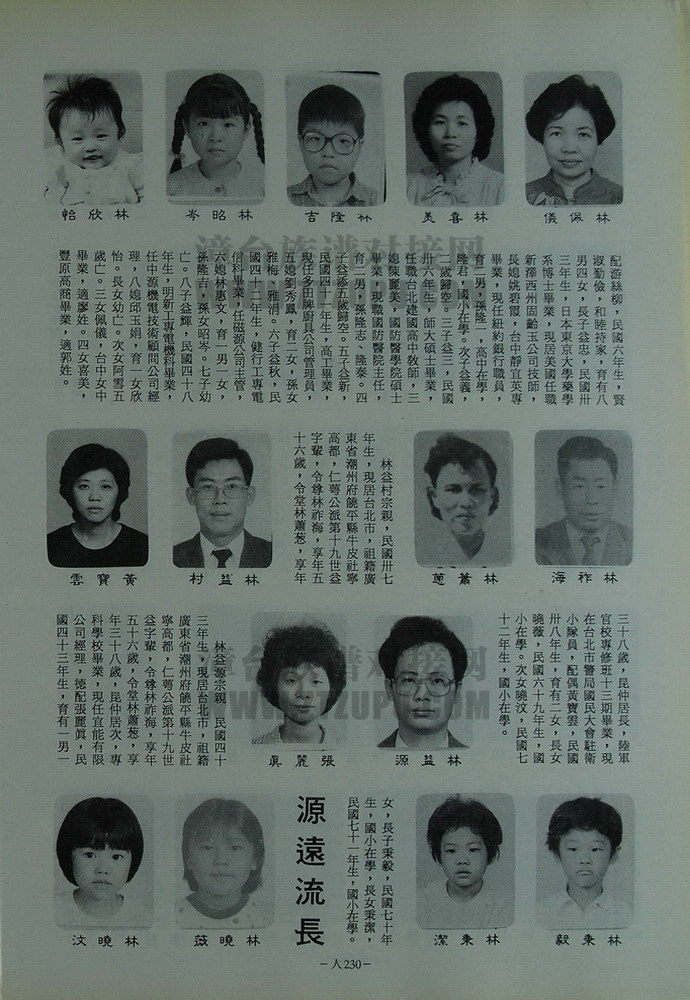 林佩儀
林喜美
林隆吉
林昭岑
林欣怡
配游絲柳，民國六年生，賢
淑勤儉，和睦持家，育有八
男四女，長子益忠，民國卅
三年生，日本東京大學藥學
系博士畢業，現居美國任職
新澤西州固齡玉公司技師，
長媳姚碧霞，台中靜宜英專
畢業，現任紐約銀行職員，
育二男，孫隆一，高中在學，
隆君，國小在學。次子益義，
二歲歸空。三子益三，民國
卅六年生，師大碩士畢業，
任職台北建國高中敎師，三
媳陳麗美，國防醫學院碩士
畢業，現職國防醫院主任，
育二男，孫隆志、隆泰。四
子益添五歲歸空。五子益新，
民國四十一年生，高工畢業，
現任多田牌廚具公司管理員，
五媳劉秀鳳，育二女，孫女
雅梅、雅涓。六子益秋，民
國四十二年生，健行工專電
信科畢業，任磁源公司主管，
六媳林惠文，育一男一女，
孫隆吉，孫女昭岑。七子幼
亡。八子益輝，民國四十八
年生，明新工專電機科畢業，
任中源機電技術顧問公司經
理，八媳邱玉娟，育一女欣
怡。長女幼亡。次女阿雪五
歲亡。三女佩儀，台中女中
畢業，適廖姓。四女喜美，
豐原高商畢業，適郭姓。
林祚海
林蕭蔥
林益村宗親，民國卅七
年生，現居台北市，祖籍廣
東省潮州府饒平縣牛皮社寧
高都，仁萼公派第十九世益
字輩，令尊林祚海，享年五
十六歲，令堂林蕭葱，享年
林益村
黃寶雲
三十八歲，昆仲居長，陸軍
官校專修班十三期畢業，現
在台北市警局國民大會駐衛
小隊員，配偶黃寶雲，民國
卅八年生，育有二女，長女
曉薇，民國六十九年生，國
小在學。次女曉汶，民國七
十二年生，國小在學。
林益源
張麗眞
林益源宗親，民國四十
三年生，現居台北市，祖籍
廣東省潮州府饒平縣牛皮社
寧高都，仁萼公派第十九世
益字輩，令尊林祚海，享年
五十六歲，令堂林蕭葱，享
年三十八歲，昆仲居次，專
科學校畢業，現任宜能有限
公司經理，德配張麗眞，民
國四十三年生，育有一男一
林秉毅
林秉潔
女，長子秉毅，民國七十年
生，國小在學，長女秉潔，
民國七十一年生，國小在學。
源遠流長
林曉薇
林曉汶
－人230－
漳台族谱对接网
漳台族谱对接网
WWW.ZZUPU.COM